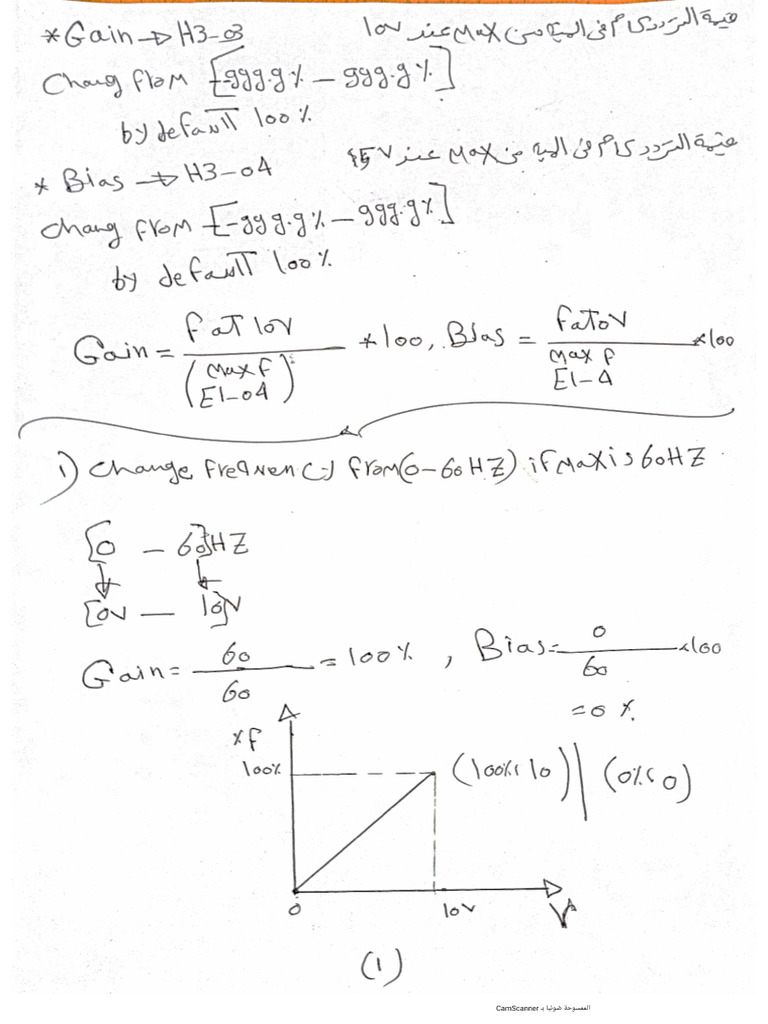 *Gain → H3-03 قيمة التردد كام فى المية من Max عند 10V
Chang from [-999.9% — 999.9%]
by default 100%
* Bias → H3-04 قيمة التردد كام فى المية من Max عند
Chang from [-999.9% — 999.9%]
by default 100%
Gain = f at 10V / (Max f E1-04) *100, Bias = f at 0V / Max f E1-4 *100
1) Change frequency from (0-60HZ) if Max is 60HZ.
[0 — 60]HZ
[0V — 10]V
Gain = 60/60 = 100%, Bias = 0/60 *100
= 0%
%f
100% (100%, 10) | (0%, 0)
0 10V V
(1)
الممسوحة ضوئيا بـ CamScanner